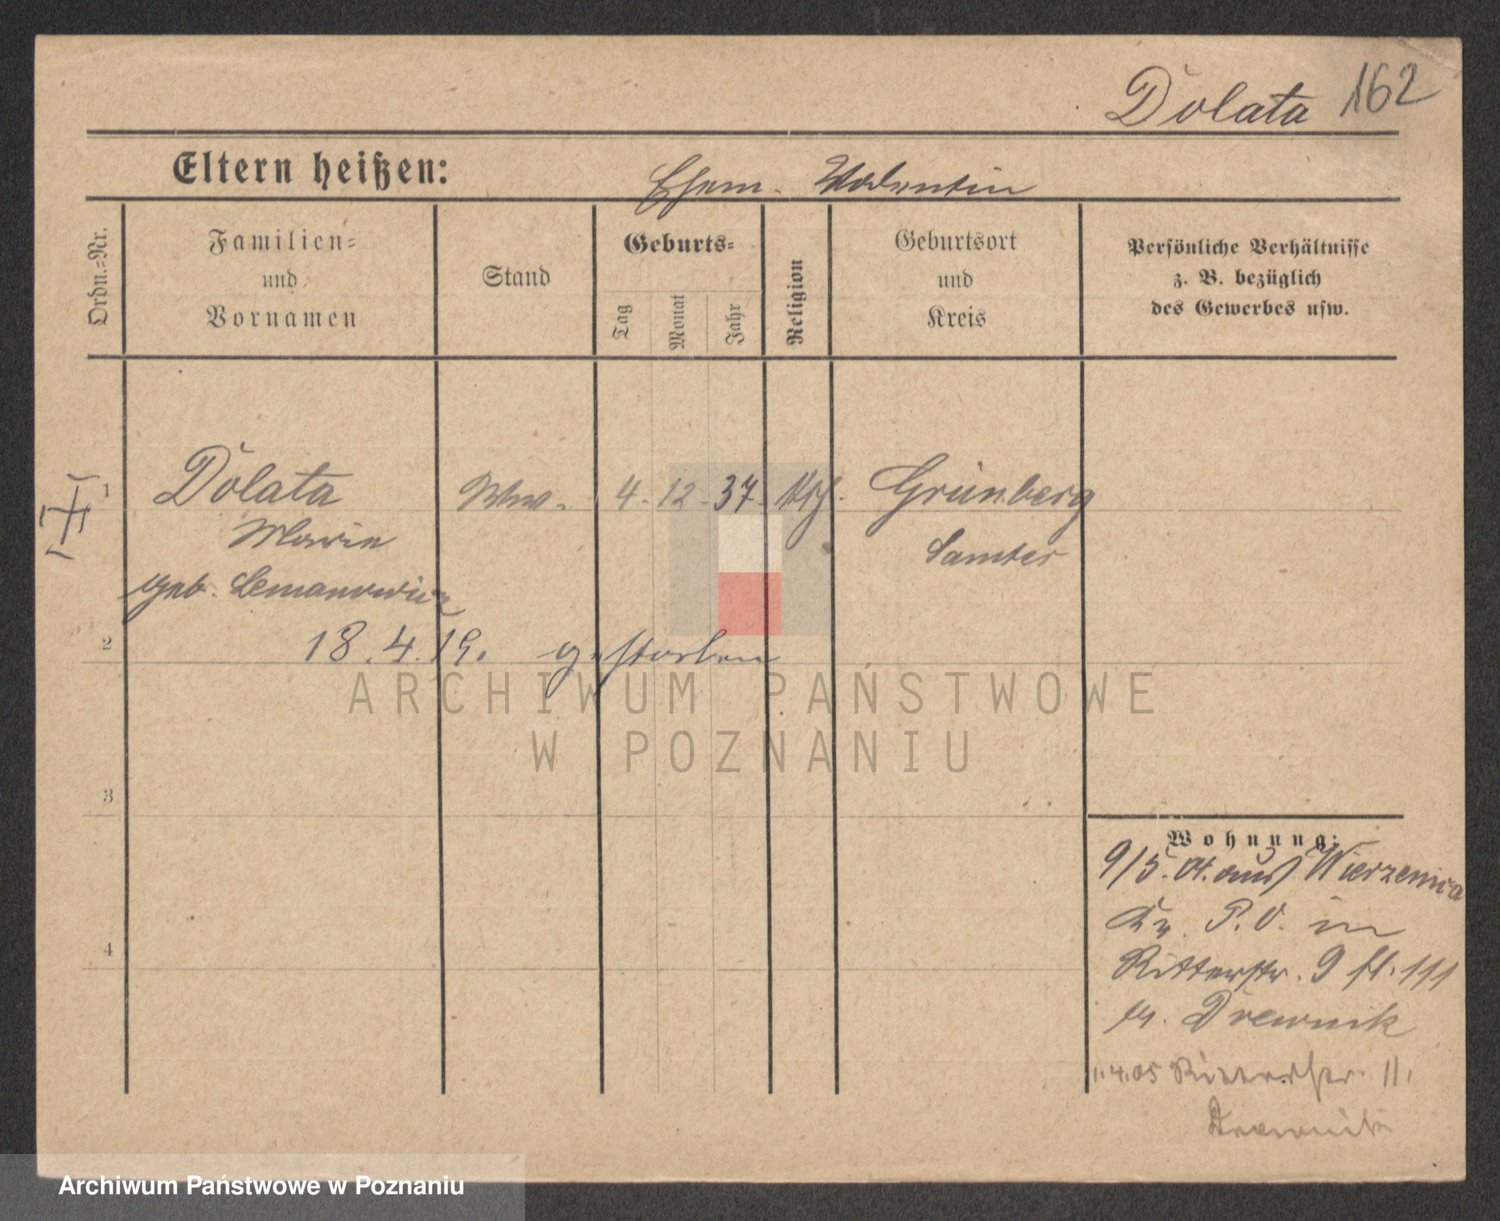 Dolata 162
Eltern heißen:
Ehem. Valentin
Ordn.-Nr.
Familien- und Vornamen
Stand
Geburts-
Tag
Monat
Jahr
Religion
Geburtsort und Kreis
Persönliche Verhältnisse
z. B. bezüglich
des Gewerbes usw.
1 Dolata Ww. 4. 12. 37. Kth. Grünberg
Marie Samter
geb. Lemanowicz
2
18.4.19. gestorben
ARCHIWUM PAŃSTWOWE
W POZNANIU
3
Wohnung:
9/5. 04. aus Wierzenica
Kr. P.O. in
4
Ritterstr. 9 III
Drewnik
1.4.05 Ritterstr. 11.
Drewnik
Archiwum Państwowe w Poznaniu